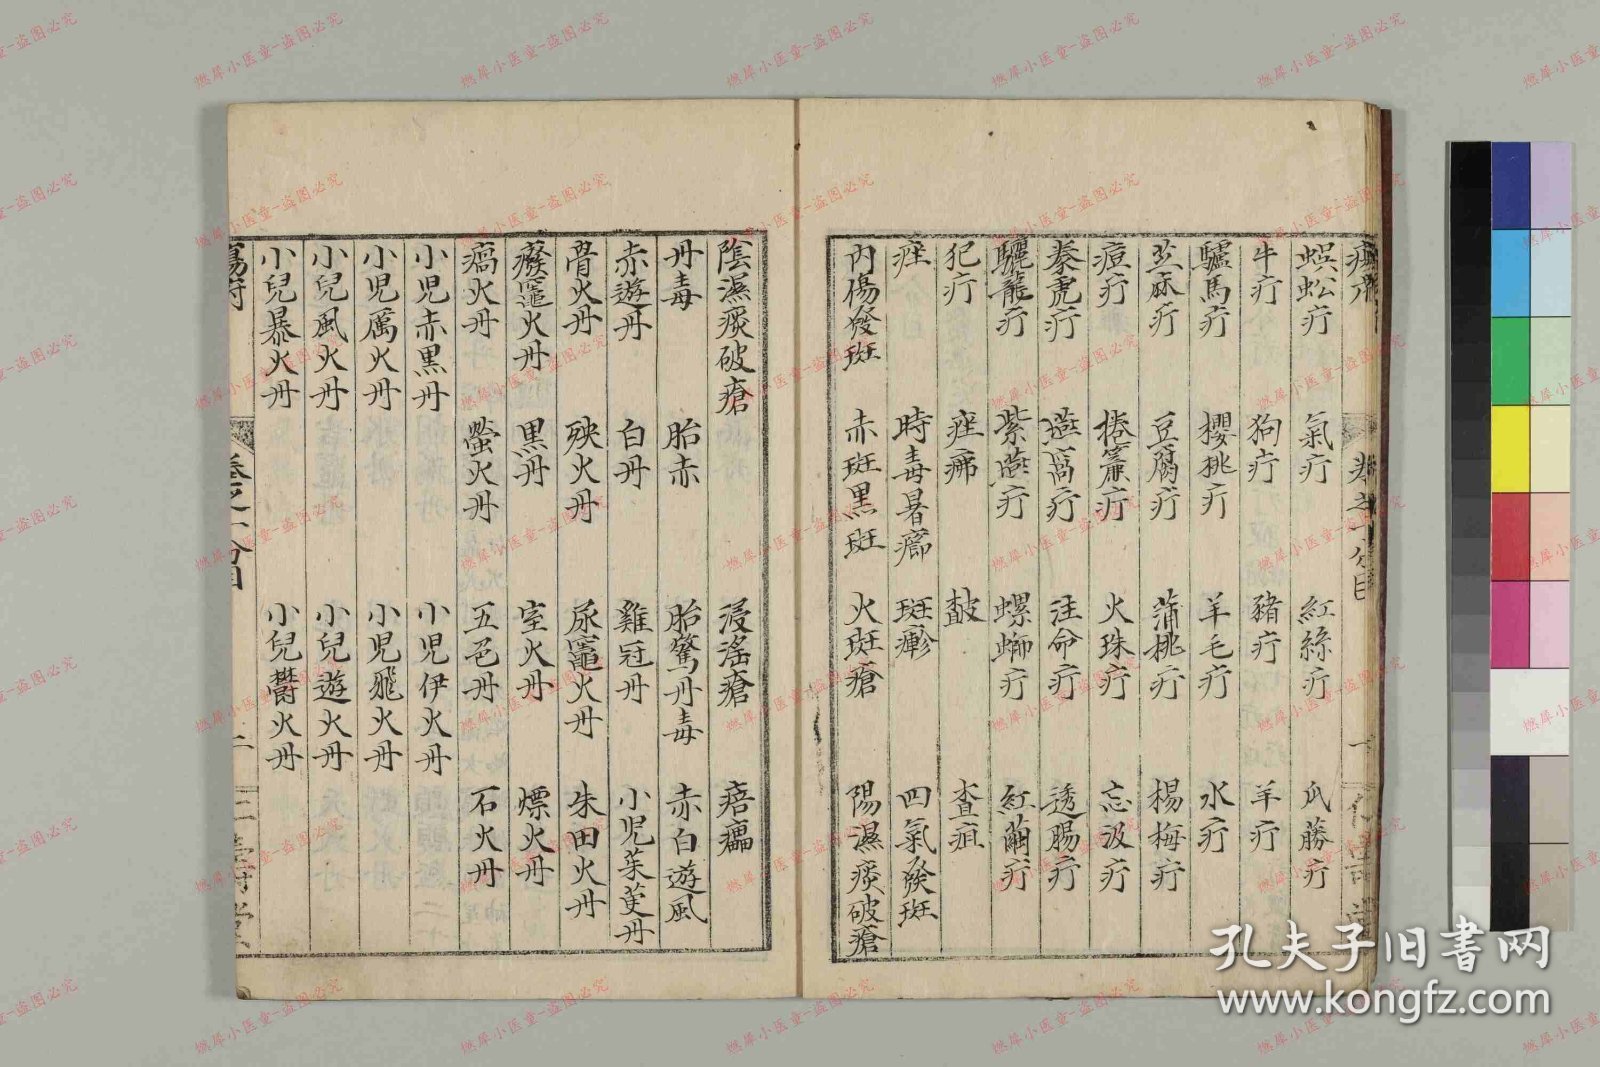 蜈蚣疔 氣疔 紅絲疔 瓜藤疔
牛疔 狗疔 豬疔 羊疔
驢馬疔 櫻桃疔 羊毛疔 水疔
芝麻疔 豆腐疔 蒲桃疔 楊梅疔
痘疔 捲簾疔 火珠疔 忘汲疔
豢虎疔 燕窩疔 注命疔 透腸疔
驪龍疔 紫燕疔 螺螄疔 紅繭疔
犯疔 痤疿 皶 查疽
痤 時毒暑癤 斑疹 四氣發斑
內傷發斑 赤斑黑斑 火斑瘡 陽濕痰破瘡
陰濕痰破瘡 浸淫瘡 痦㿔
丹毒 胎赤 胎驚丹毒 赤白遊風
赤遊丹 白丹 雞冠丹 小児茱萸丹
骨火丹 殃火丹 尿竈火丹 朱田火丹
癈竈火丹 黒丹 室火丹 熛火丹
瘑火丹 螢火丹 五色丹 石火丹
小児赤黒丹 小児伊火丹
小児厲火丹 小児飛火丹
小兒風火丹 小兒遊火丹
小兒暴火丹 小兒欝火丹
瘍府 卷之 分目 二
孔夫子旧书网
www.kongfz.com
燃犀小医童-盗图必究